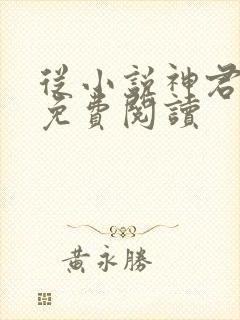 從小說神君
免費閱讀
黃永勝